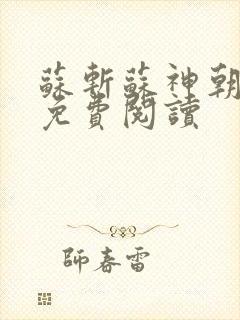 蘇斬蘇神朝
免費閱讀
師春雷